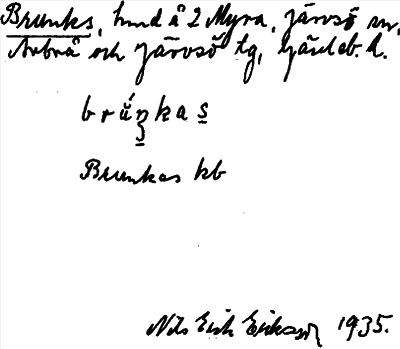 Brunks, hmd å 2 Myra, Järvsö sn,
Arbrå och Järvsö tg, Gävleb. l.
brúŋkas̱
Brunkas kb
Nils Erik Eriksson 1935.